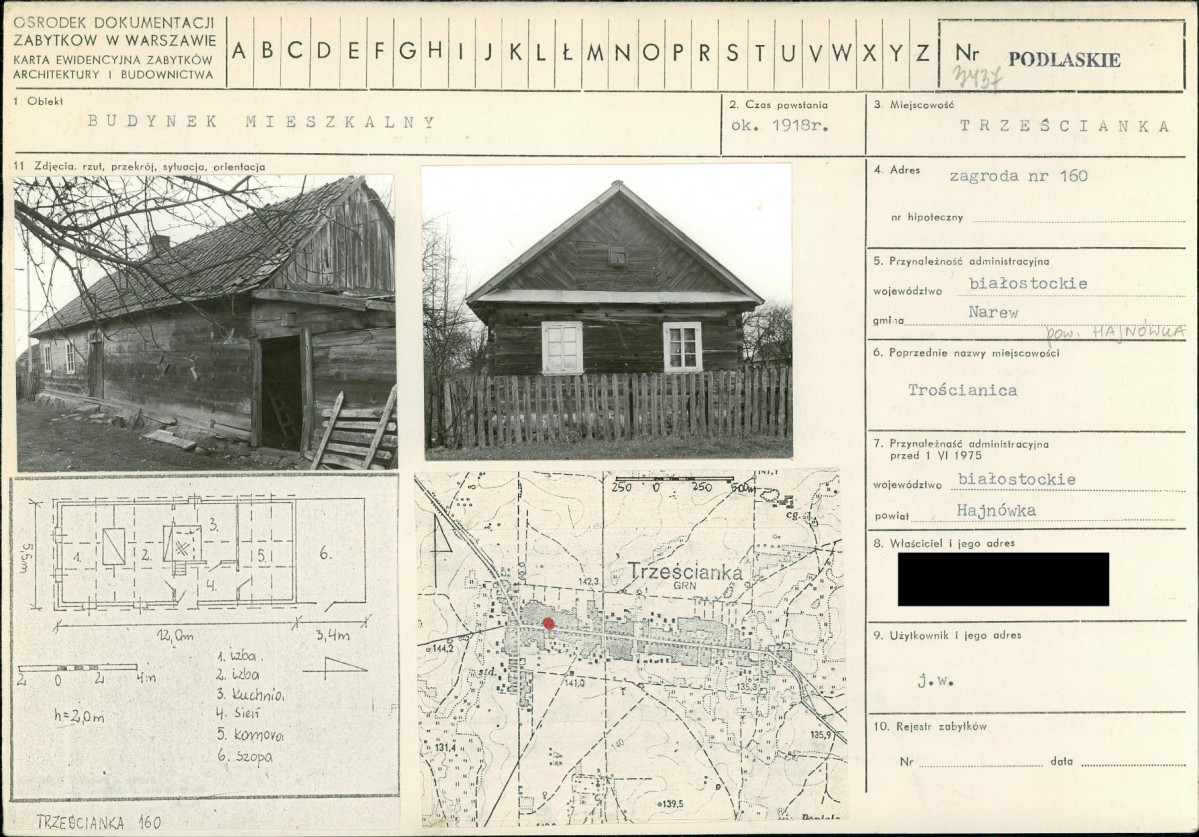 OSRODEK DOKUMENTACJI
ZABYTKOW W WARSZAWIE
KARTA EWIDENCYJNA ZABYTKÓW
ARCHITEKTURY I BUDOWNICTWA
A B C D E F G H I J K L Ł M N O P R S T U V W X Y Z
Nr PODLASKIE
3437
1 Obiekt
BUDYNEK MIESZKALNY
2. Czas powstania
ok. 1918r.
3. Miejscowość
TRZEŚCIANKA
11 Zdjęcia, rzut, przekrój, sytuacja, orientacja
4. Adres zagroda nr 160
nr hipoteczny
5. Przynależność administracyjna
województwo białostockie
gmina Narew
pow. HAJNÓWKA
6. Poprzednie nazwy miejscowości
Trościanica
7. Przynależność administracyjna
przed 1 VI 1975
województwo białostockie
powiat Hajnówka
8. Właściciel i jego adres
9. Użytkownik i jego adres
j.w.
10. Rejestr zabytków
Nr data
5,6m
1. 2. 3. 4. 5. 6.
12,0m 3,4m
2 0 2 4m
h=2,0m
1. izba.
2. izba
3. kuchnia
4. sień
5. komora
6. szopa
TRZEŚCIANKA 160
250 0 250 500m
147,1
cg.
Trześcianka
GRN
142,3
144,2
std.
141,0
135,3
135,9
131,4
140
139,5